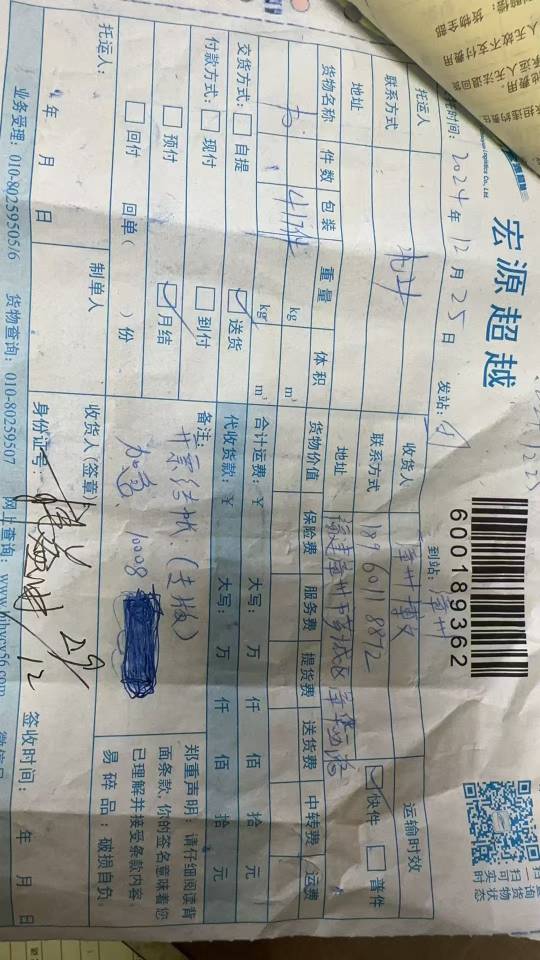 宏源超越
600189362
托时间：2024年12月25日 发站： 到站：漳州
托运人 收货人 漳州博文 运输时效
联系方式 北京 联系方式 189 6011 8872 快件 普件
地址 地址 福建漳州市芗城区
货物名称 件数 包装 重量 体积 货物价值 保险费 服务费 提货费 送货费 中转费 运费
书 41件 kg m³
kg m³ 合计运费：￥ 大写： 万 仟 佰 拾 元
交货方式： 自提 送货 代收货款：￥ 大写： 万 仟 佰 拾 元
付款方式： 现付 到付 备注：
预付 月结 开票结帐：(走版)
回付 回单( )份 加急 10008
郑重声明：请仔细阅读背
面条款，你的签名意味着您
已理解并接受条款内容。
易碎品：破损自负。
托运人： 制单人 收货人(签章)
年 月 日 身份证号： 29/12 签收时间： 年 月 日
业务受理：010-80259505/6 货物查询：010-80259507 网上查询：
人无故不支付费用
货物全部